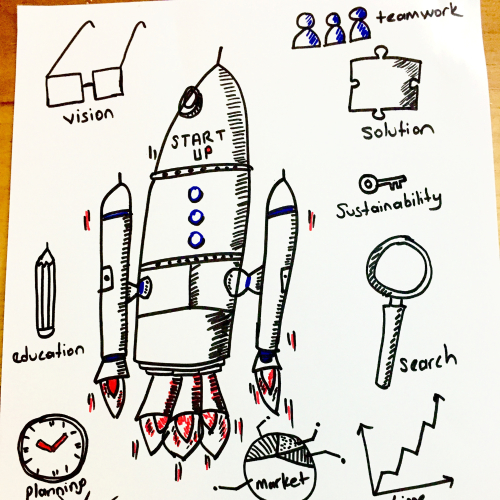 teamwork
vision
START
UP
solution
Sustainability
education
search
planning
market